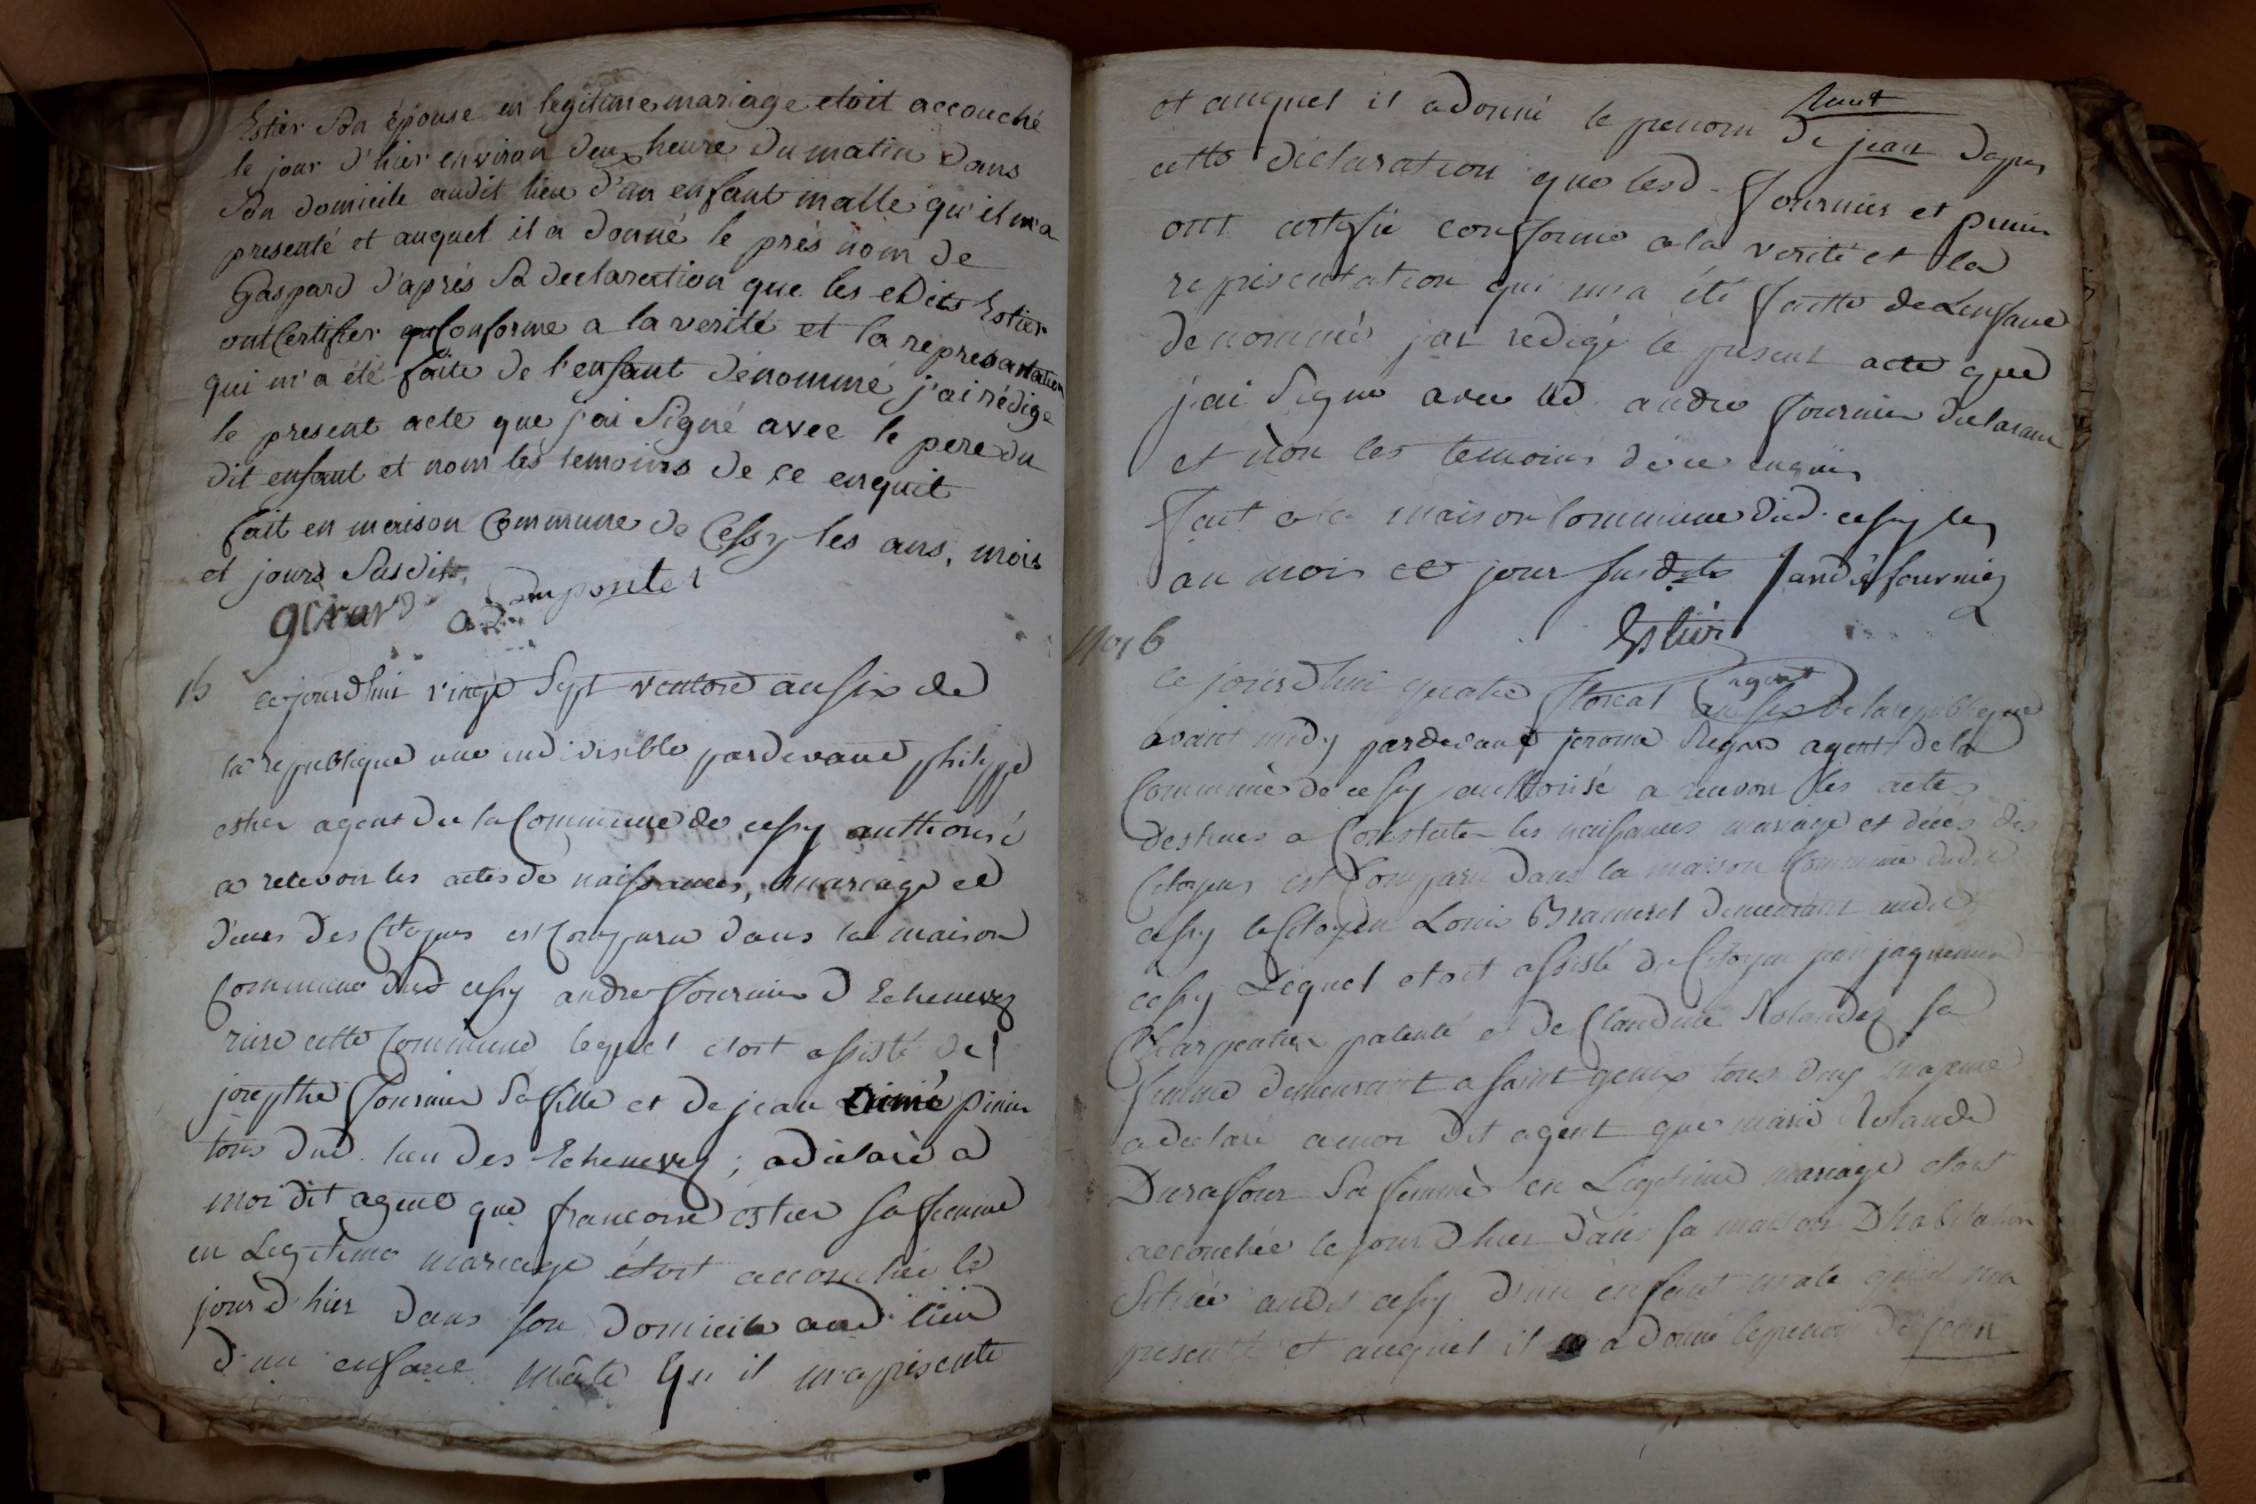 Estier son épouse en legitime mariage etoit accouché
le jour d'hier environ deux heure du matin dans
son domicile audit lieu d'un enfant malle qu'il m'a
presenté et auquel il a donné le pres nom de
Gaspard d'aprés sa declaration que les edits Estier
ont Certifier conforme a la verité et la representation
qui m'a été faite de l'enfant dénommé j'ai rédige
le present acte que j'ai signé avec le pere du
dit enfant et nom les temoins de ce enquit
fait en maison Commune de Cessy les ans, mois
et jours susdit.
girard
15 cejourdhui vingt sept ventose an six de
la republique une indivisible pardevant philippe
estier agent de la Commune de cessy authorisé
a recevoir les actes de naissances, mariage et
déces des Citoyens est Comparu dans la maison
Commune dud cessy andre fournier d Echenevez
riere cette Commune lequel etoit assisté de
josepthe fournier sa fille et de jean aimé
tous dud. lieu des Echenevez ; a déclaré a
moi dit agent que francoise estier sa femme
en Legitime mariage étoit accouchée le
jour d'hier dans son domicile aud lieu
d'un enfant mâle qu'il m'a présenté
et auquel il a donné le prenom de jean dapres
cette declaration que lesd. fournier et
ont certifié conforme a la verité et la
representation qui m'a été faitte de Lenfant
denommé jai redigé le present acte que
j'ai signé avec led. andre fournier declarant
et non les temoins de ce enquis
fait a la maison Commune dud. cessy les
an mois et jour susdits andré fournier
Estier
no 16
ce jourdhui quatre floreal an six de la republique
agent
avant midy pardevant jerome Regard agent de la
Commune de cessy authorisé a recevoir les actes
destinés a Constater les naissances mariage et déces des
Citoyens est Comparu dans la maison Commune dudit
cessy le Citoyen Louis demeurant audit
cessy Lequel etoit assisté du Citoyen jean jaquemin
Charpentier patenté et de Claudine Rolandez sa
femme demeurant a saint genix tous deux majeure
a declaré a moi dit agent que marie Rolande
Durafour sa femme en Legitime mariage etoit
accouchée le jour dhier dans sa maison dhabitation
Située audit cessy d'un enfant male qu'il m'a
presenté et auquel il a donné le prenom de jean